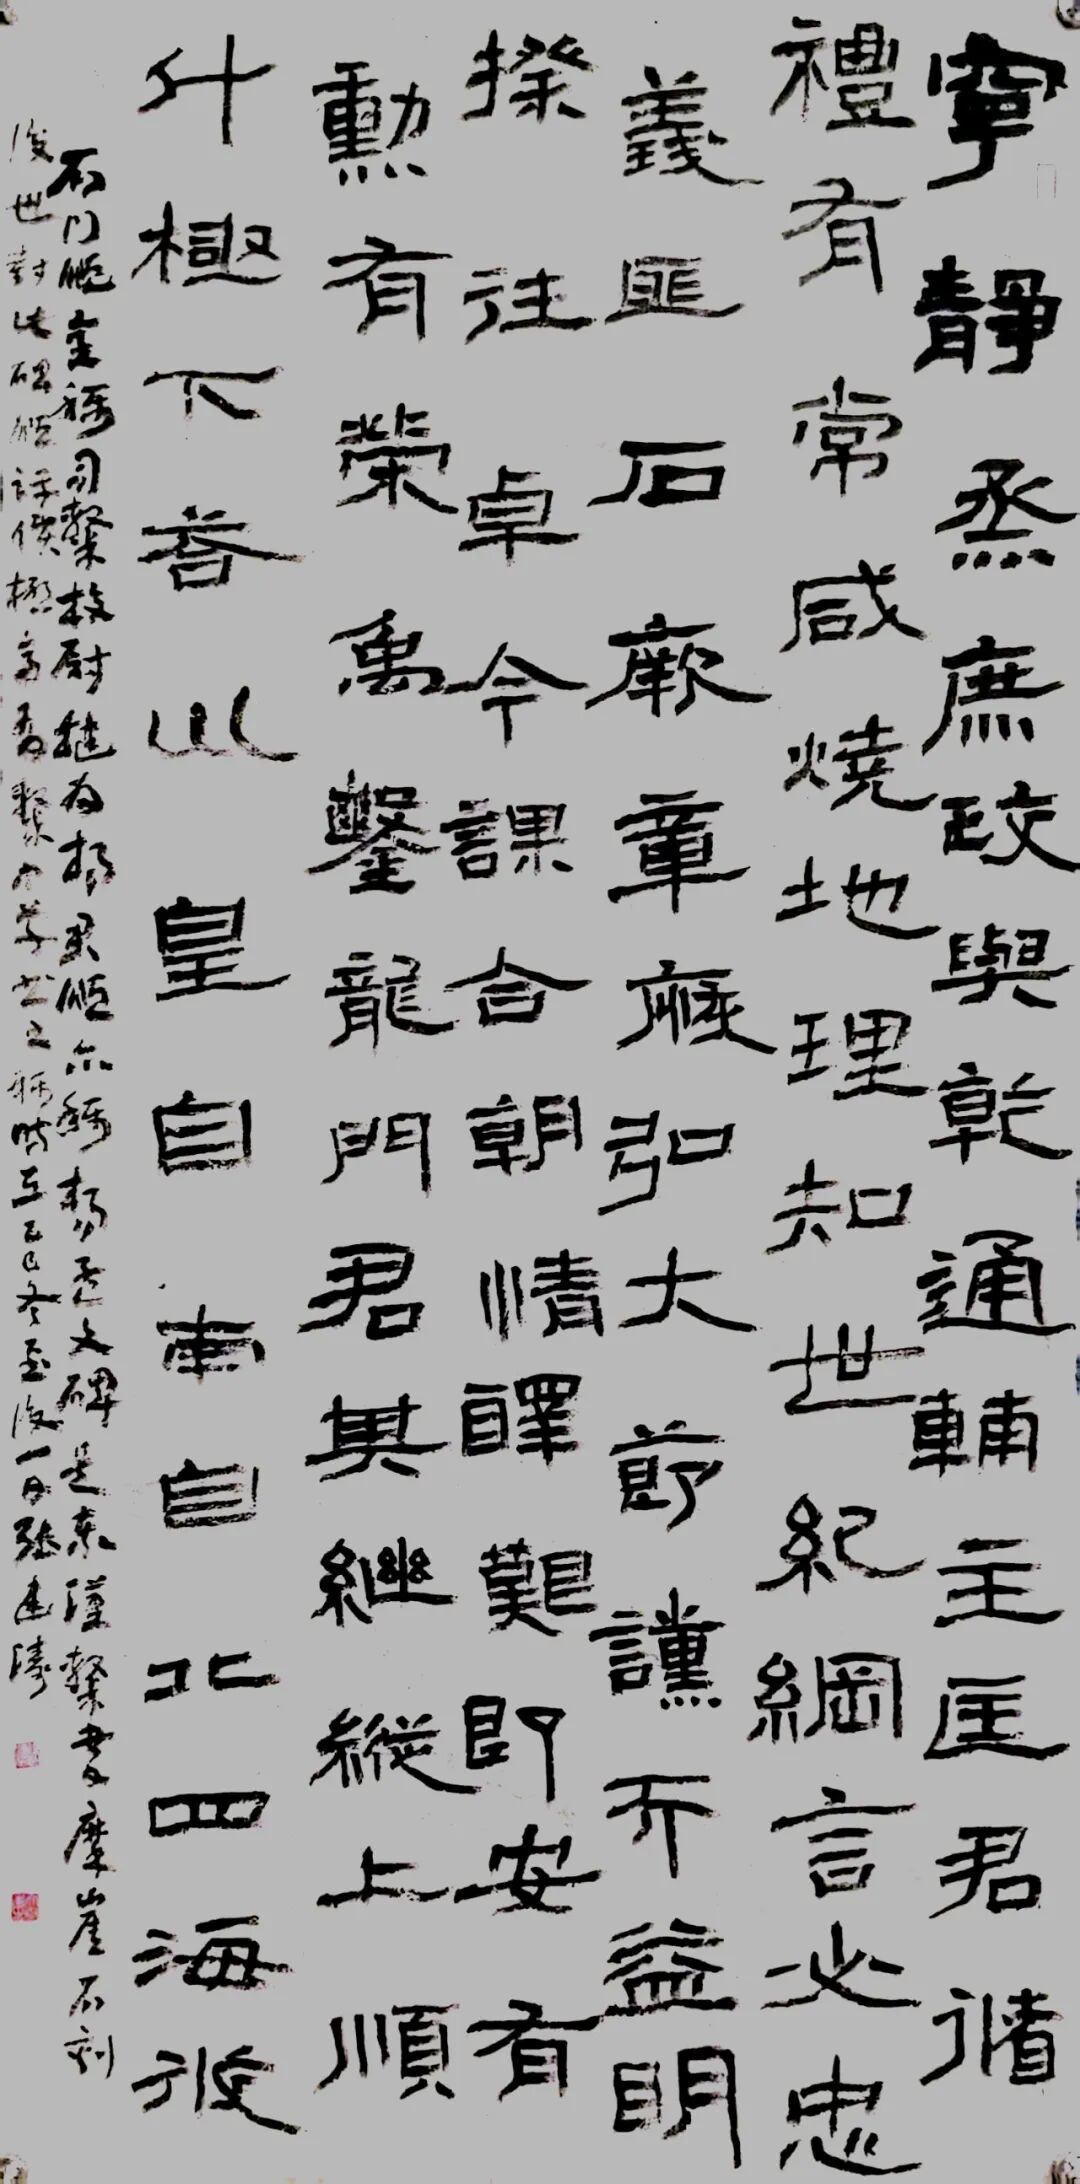 寧靜烝庶政與乾通輔主匡君循
禮有常咸燒地理知世紀綱言必忠
義匪石厥章弘大節讜而益明
揆往卓今課合朝情醳艱即安有
勳有榮禹鑿龍門君其繼縱上順
斗極下答山皇自南自北四海攸
石門頌全稱司隸校尉楗為楊君頌亦稱楊孟文碑是東漢隸書摩崖石刻
後世對此碑頌評價極高有隸中草書之稱時在乙巳冬至後一日張建濤